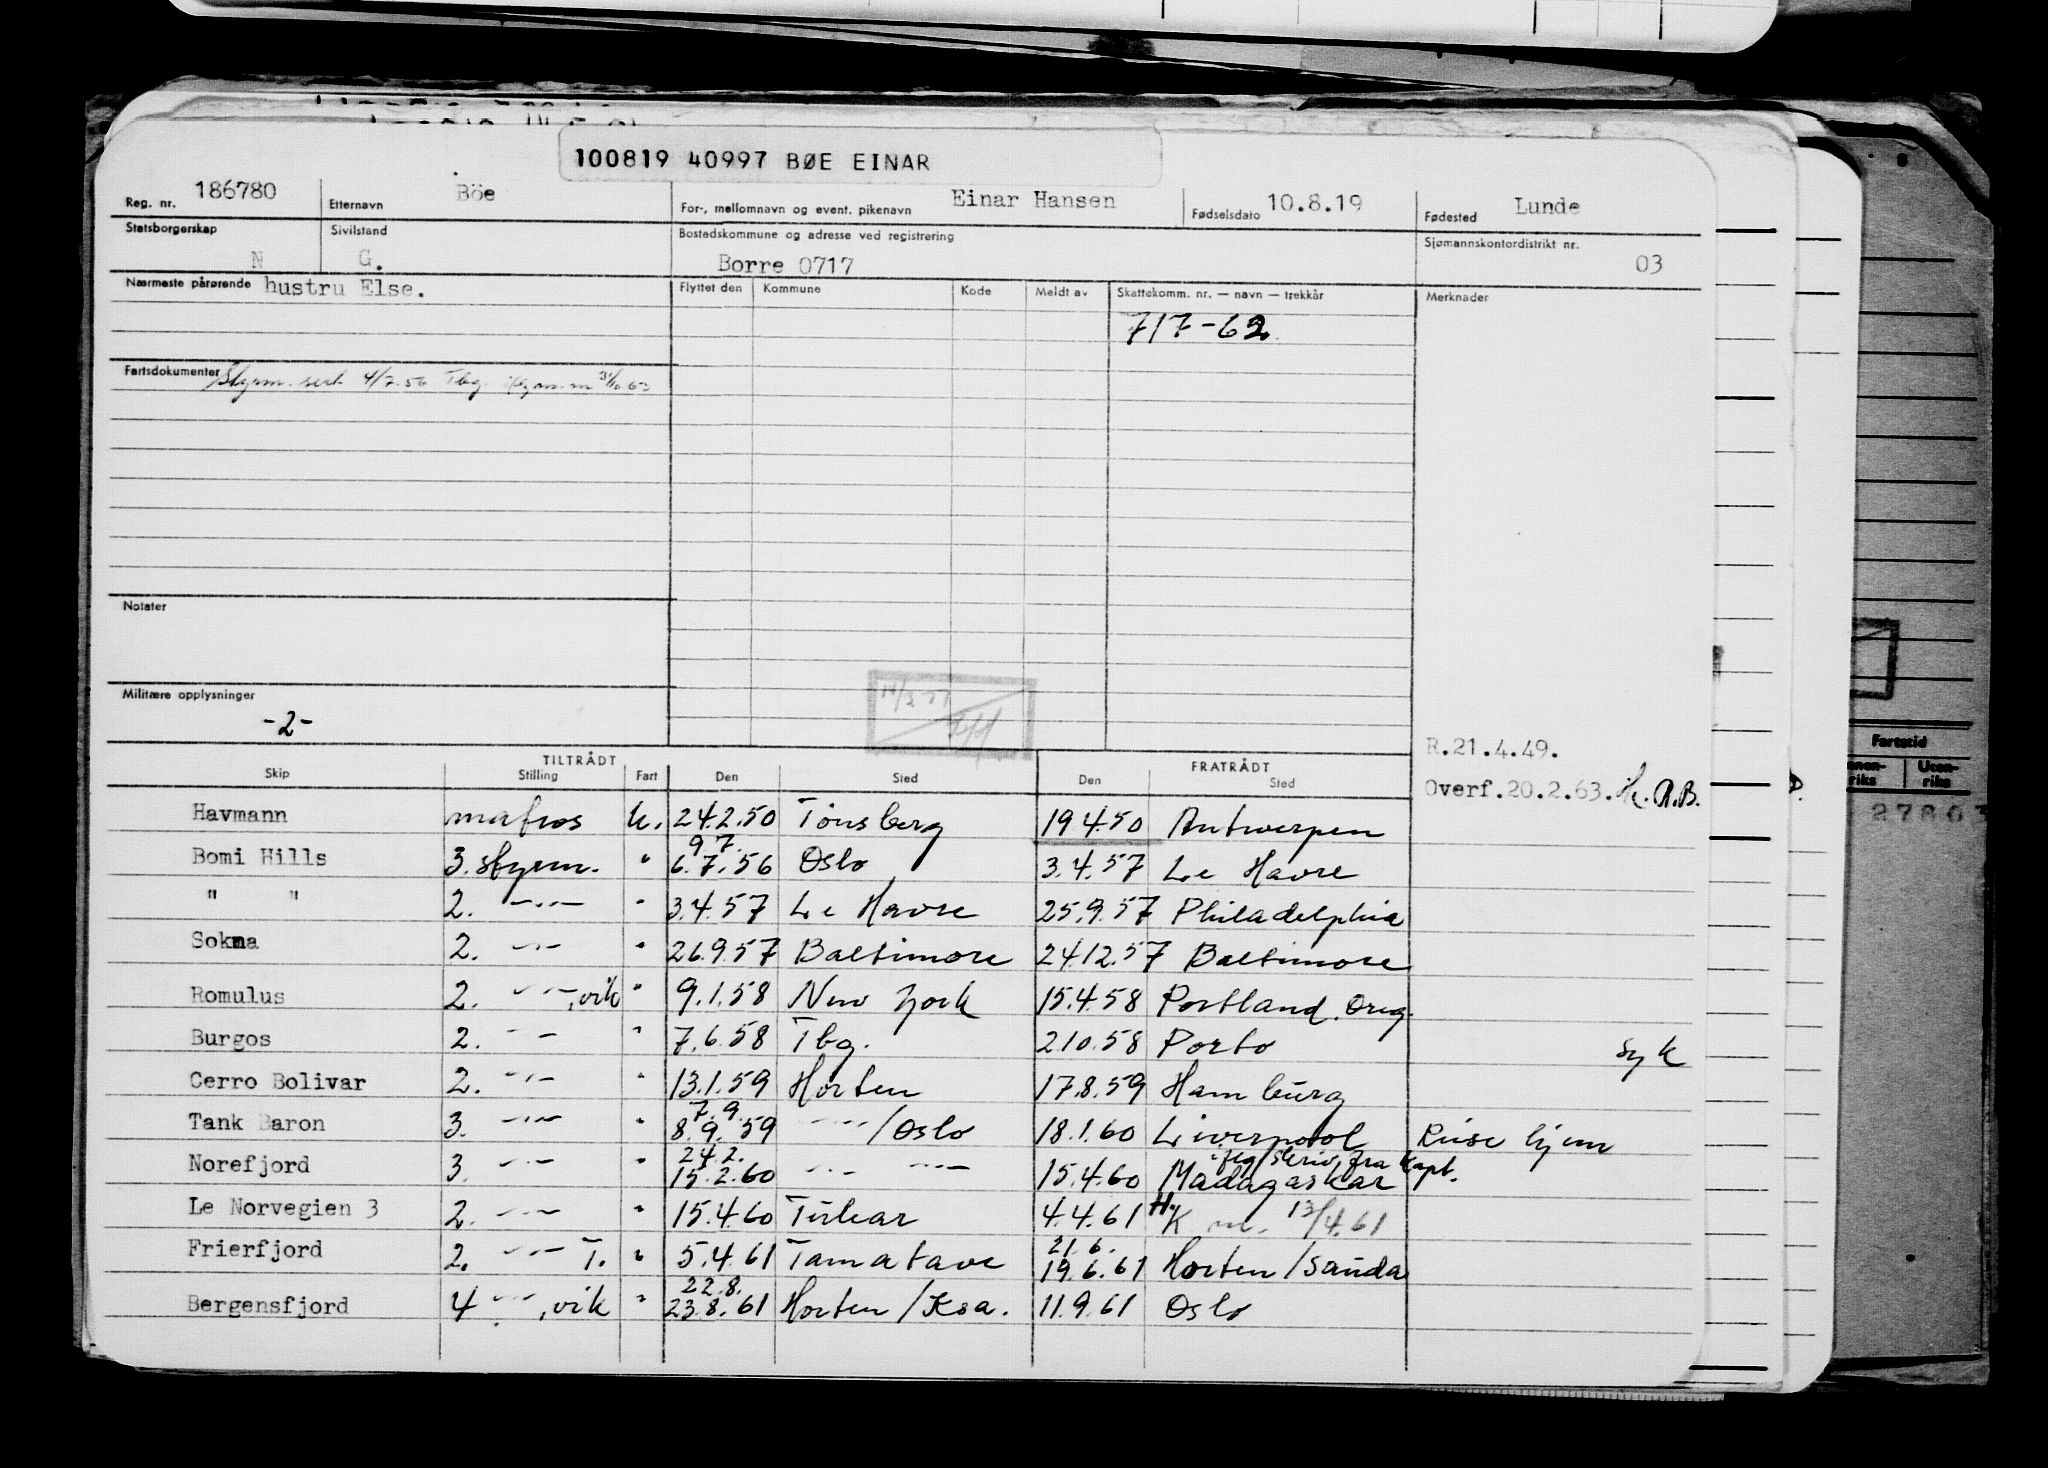 100819 40997 BØE EINAR
Reg. nr. 186780 Etternavn Böe For-, mellomnavn og event. pikenavn Einar Hansen Fødselsdato 10.8.19 Fødested Lunde
Statsborgerskap N Sivilstand G. Bostedskommune og adresse ved registrering Borre 0717 Sjømannskontordistrikt nr. 03
Nærmeste pårørende hustru Else. Flyttet den Kommune Kode Meldt av Skattekomm. nr. — navn — trekkår Merknader
717-62
Fartsdokumenter Styrm. sert. 4/7.56 Tbg. 31/10 63
Notater
Militære opplysninger
-2-
R.21.4.49.
Overf.20.2.63. A.B.
TILTRÅDT FRATRÅDT
Skip Stilling Fart Den Sted Den Sted
Havmann matros u. 24.2.50 Tönsberg 19.4.50 Antwerpen
9 7.
Bomi Hills 3. styrm. " 6.7.56 Oslo 3.4.57 Le Havre
" " 2. -"- " 3.4.57 Le Havre 25.9.57 Philadelphia
Sokna 2. -"- " 26.9.57 Baltimore 24.12.57 Baltimore
Romulus 2. -"-, vik " 9.1.58 New York 15.4.58 Portland. Oreg.
Burgos 2. -"- " 7.6.58 Tbg. 2.10.58 Porto syk
Cerro Bolivar 2. -"- " 13.1.59 Horten 17.8.59 Hamburg
7.9.
Tank Baron 3. -"- " 8.9.59 -"-/Oslo 18.1.60 Liverpool Reise hjem
24.2. flg. skriv. fra kapt.
Norefjord 3. -"- " 15.2.60 -"- -"- 15.4.60 Madagaskar
Le Norvegien 3 2. -"- " 15.4.60 Tulear 4.4.61 H.K m. 13/4.61
21.6.
Frierfjord 2. -"- T. " 5.4.61 Tamatave 19.6.61 Horten/Sauda
22.8.
Bergensfjord 4 -"-, vik " 23.8.61 Horten/Ksa. 11.9.61 Oslo
Fartstid
Uten-
riks riks
27803